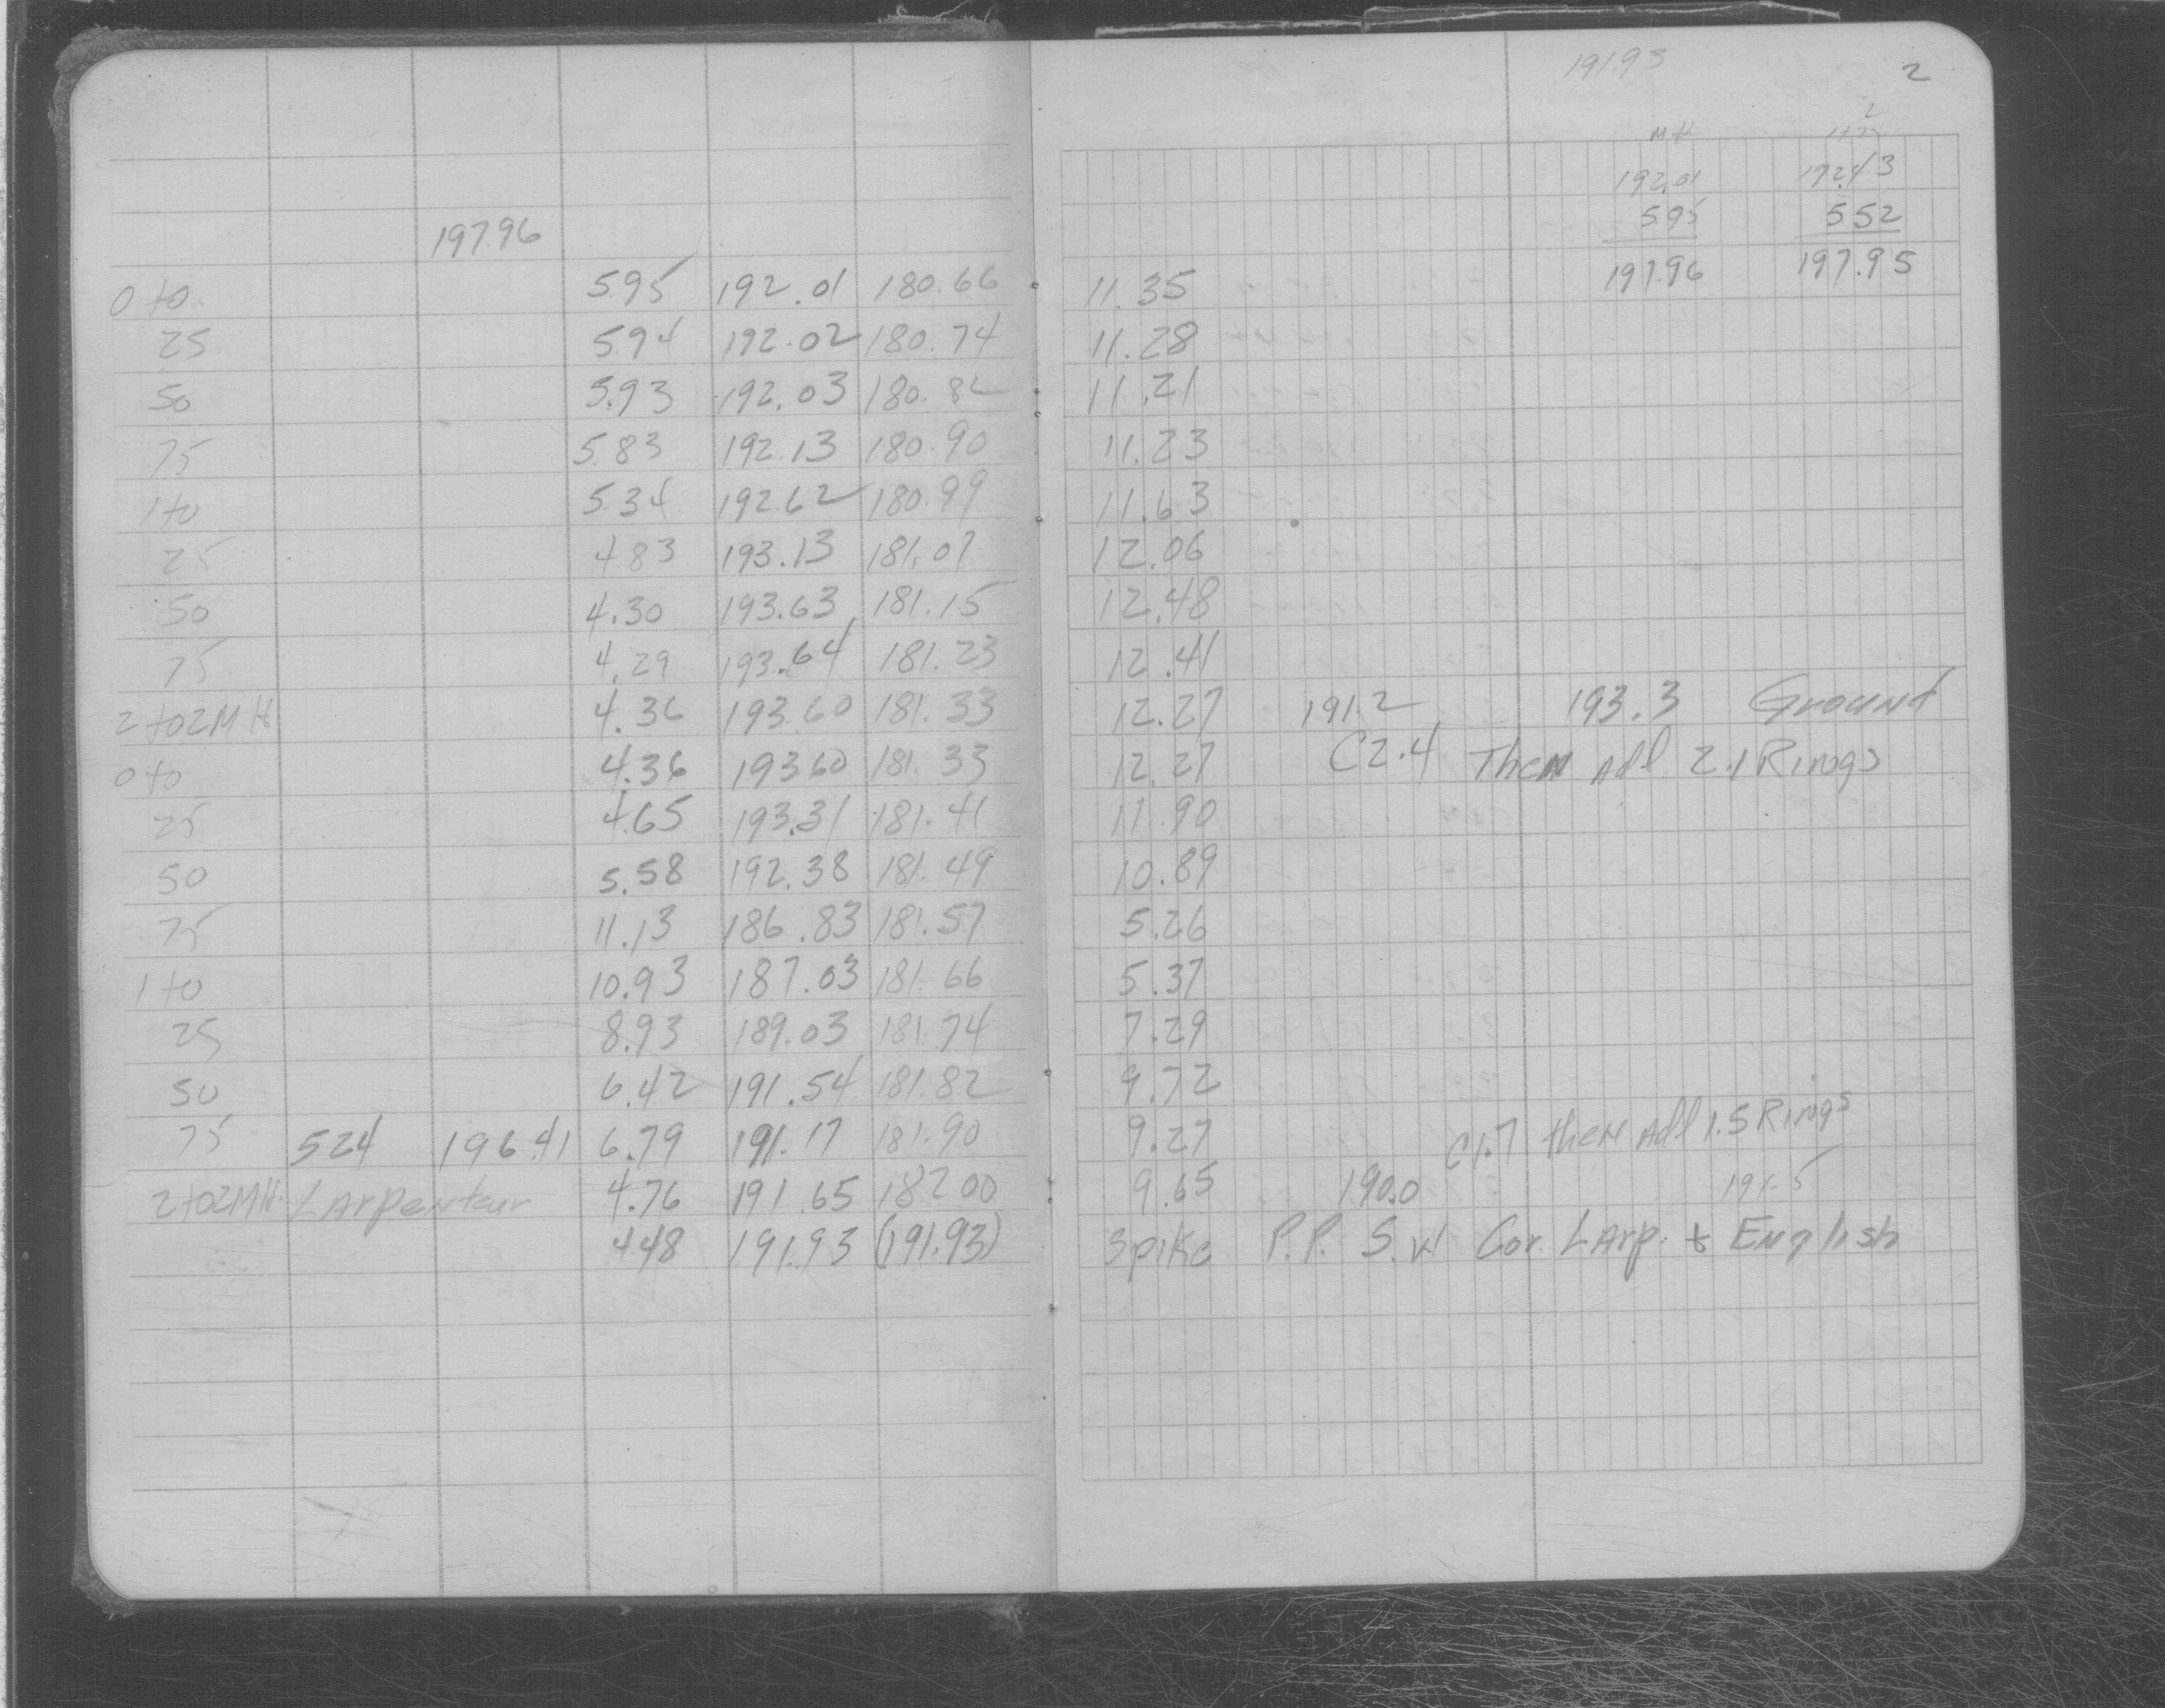 191.93 2
MH
192.01 192.43
5.95 5.52
197.96 197.95
197.96
0+0 5.95 192.01 180.66 11.35
25 5.94 192.02 180.74 11.28
50 5.93 192.03 180.82 11.21
75 5.83 192.13 180.90 11.23
1+0 5.34 192.62 180.99 11.63
25 4.83 193.13 181.07 12.06
50 4.30 193.63 181.15 12.48
75 4.29 193.64 181.23 12.41
2+02MH 4.36 193.60 181.33 12.27 191.2 193.3 Ground
0+0 4.36 193.60 181.33 12.27 C2.4 Then Add 2.1 Rings
25 4.65 193.31 181.41 11.90
50 5.58 192.38 181.49 10.89
75 11.13 186.83 181.57 5.26
1+0 10.93 187.03 181.66 5.37
25 8.93 189.03 181.74 7.29
50 6.42 191.54 181.82 9.72
75 524 196.41 6.79 191.17 181.90 9.27 C1.7 then Add 1.5 Rings
2+02MH Larpenteur 4.76 191.65 182.00 9.65 190.0 191.5
4.48 191.93 (191.93) Spike P.P. S.W Cor. LArp. & English